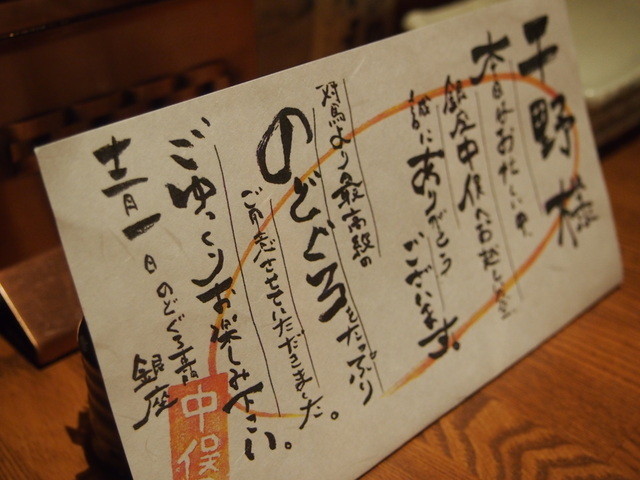 平野様
本日はお忙しい中、
銀座中俣へお越し
誠にありがとう
ございます。
対馬より最高級の
のどぐろをたっぷり
ご用意させていただきました。
ごゆっくりお楽しみ下さい。
十二月一日
のどぐろ専門
銀座
中俣